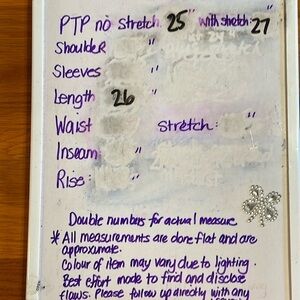 PTP no stretch: 25" with stretch: 27"
Shoulder "
Sleeves "
Length 26 "
Waist " Stretch: "
Inseam: "
Rise: "
Double numbers for actual measure
* All measurements are done flat and are
approximate.
Colour of item may vary due to lighting.
Best effort made to find and disclose
flaws. Please follow up directly with any